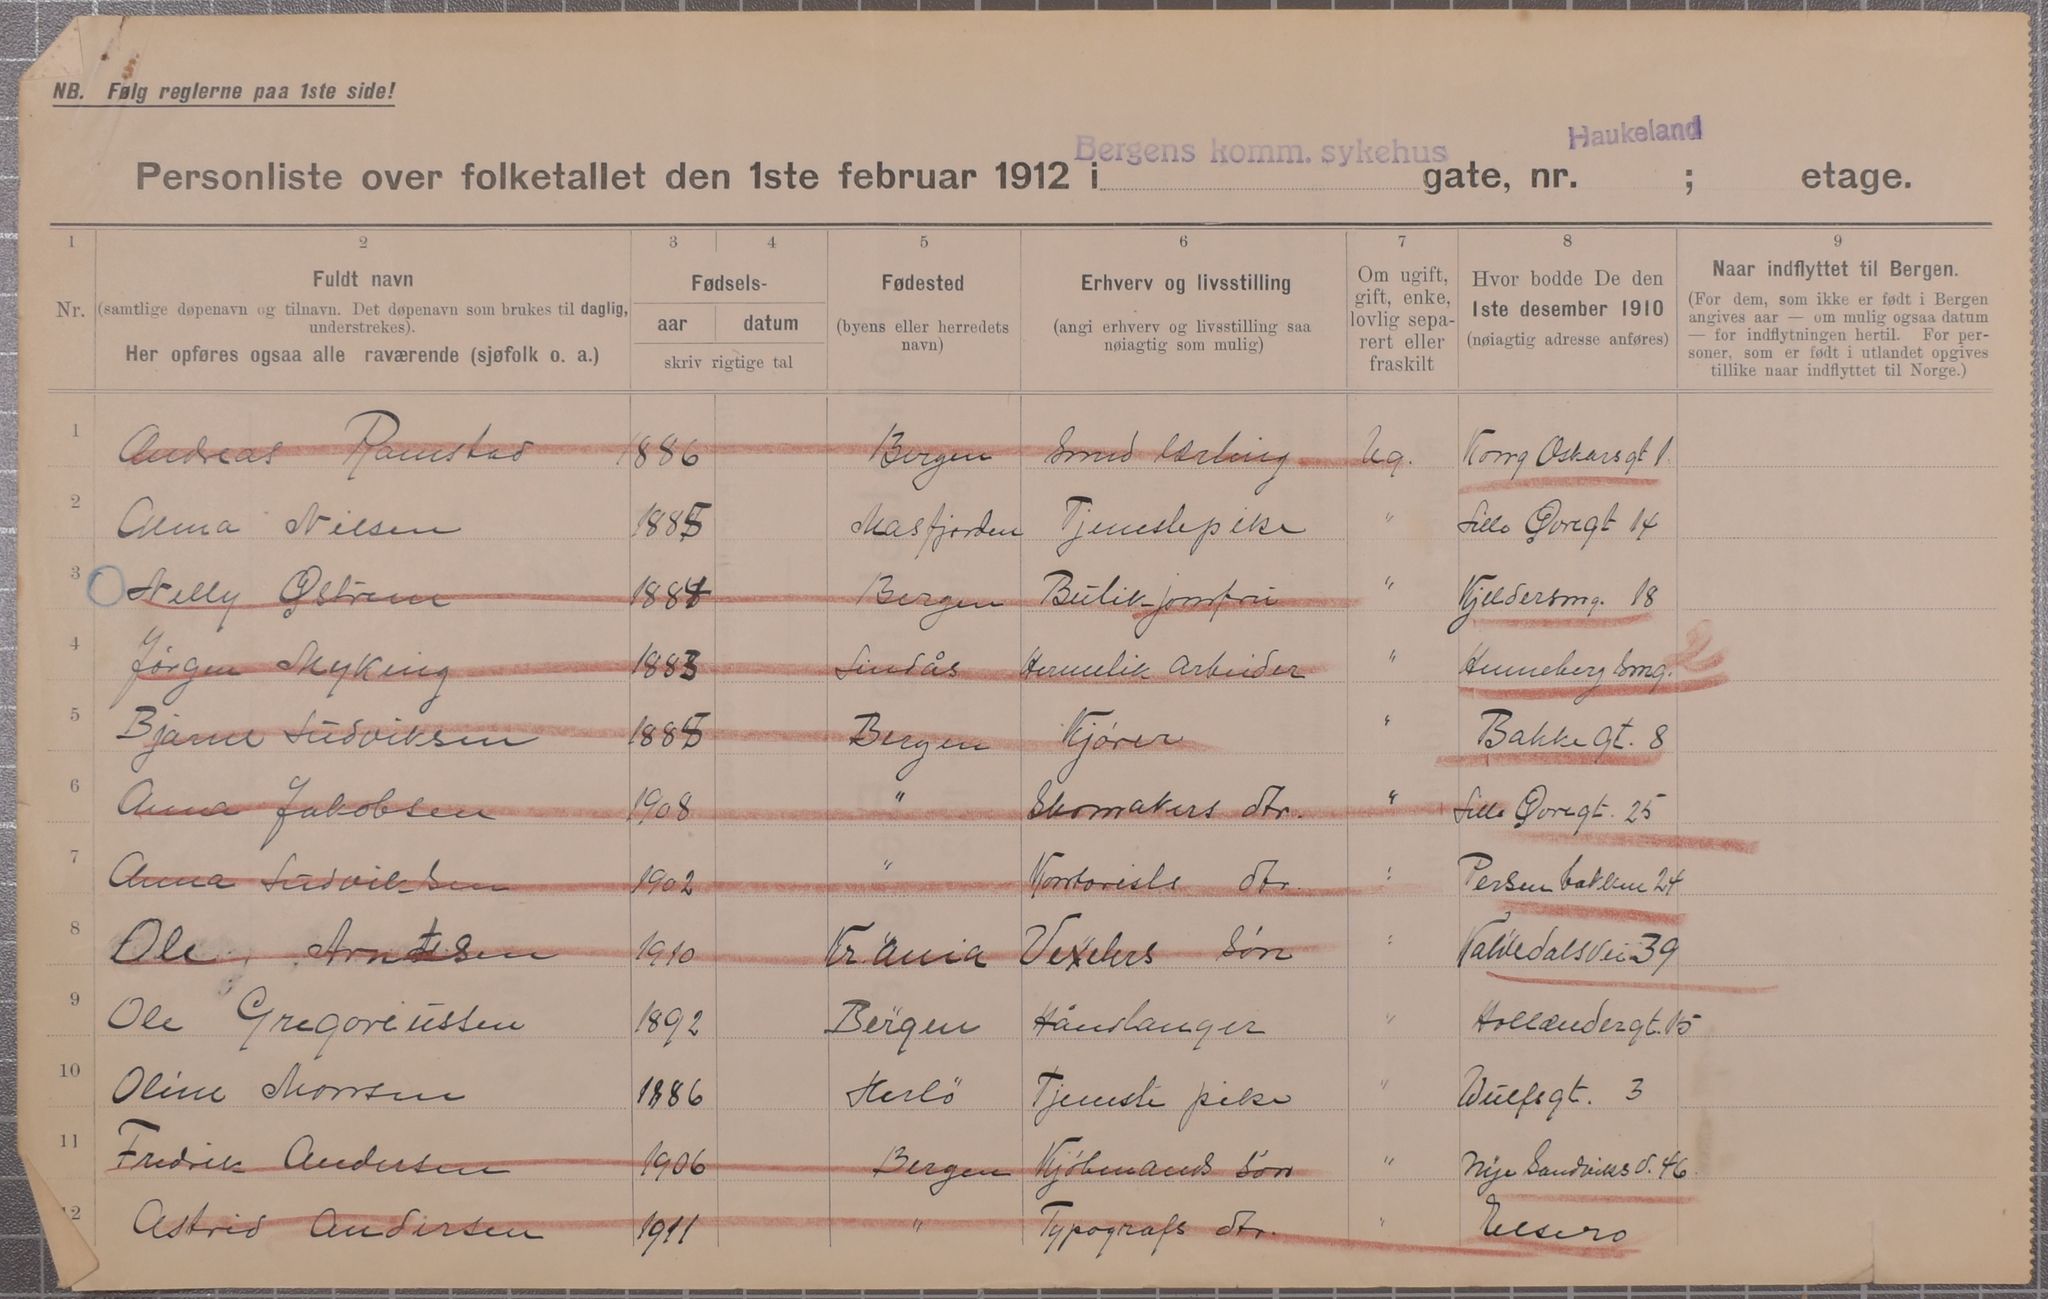 NB. Følg reglerne paa 1ste side!
Bergens komm. sykehus Haukeland
Personliste over folketallet den 1ste februar 1912 i gate, nr. ; etage.
1 2 3 4 5 6 7 8 9
Nr.
Fuldt navn
(samtlige døpenavn og tilnavn. Det døpenavn som brukes til daglig,
understrekes).
Her opføres ogsaa alle raværende (sjøfolk o. a.)
Fødsels-
aar datum
skriv rigtige tal
Fødested
(byens eller herredets
navn)
Erhverv og livsstilling
(angi erhverv og livsstilling saa
nøiagtig som mulig)
Om ugift,
gift, enke,
lovlig sepa-
rert eller
fraskilt
Hvor bodde De den
1ste desember 1910
(nøiagtig adresse anføres)
Naar indflyttet til Bergen.
(For dem, som ikke er født i Bergen
angives aar — om mulig ogsaa datum
— for indflytningen hertil. For per-
soner, som er født i utlandet opgives
tillike naar indflyttet til Norge.)
1 Andreas Ramstad 1886 Bergen Smed lærling Ug. Kong Oskarsgt 1.
2 Alma Nilsen 1885 Masfjorden Tjenestepike " Lille Øvregt 14
3 Nelly Østrem 1884 Bergen Butikjomfru " Kjeldersmg. 18
4 Jørgen Myking 1883 Lindås Hermetik Arbeider " Hennebergsmg. 2
5 Bjarne Ludviksen 1885 Bergen Kjører " Bakkegt. 8
6 Anna Jakobsen 1908 " Skomakers dtr. " Lille Øvregt. 25
7 Anna Ludviksen 1902 " Kontorists dtr. " Persenbakken 24
8 Ole Arntsen 1910 Kr.ania Vexelers søn " Kalvedalsvei 39
9 Ole Gregoriussen 1892 Bergen Håndlanger " Hollændergt. 15
10 Oline Monsen 1886 Herlö Tjeneste pike " Wulfsgt. 3
11 Fredrik Andersen 1906 Bergen Kjøbmands søn " Nye Sandviksv. 46
12 Astrid Andersen 1911 " Typografs dtr. " Elsero